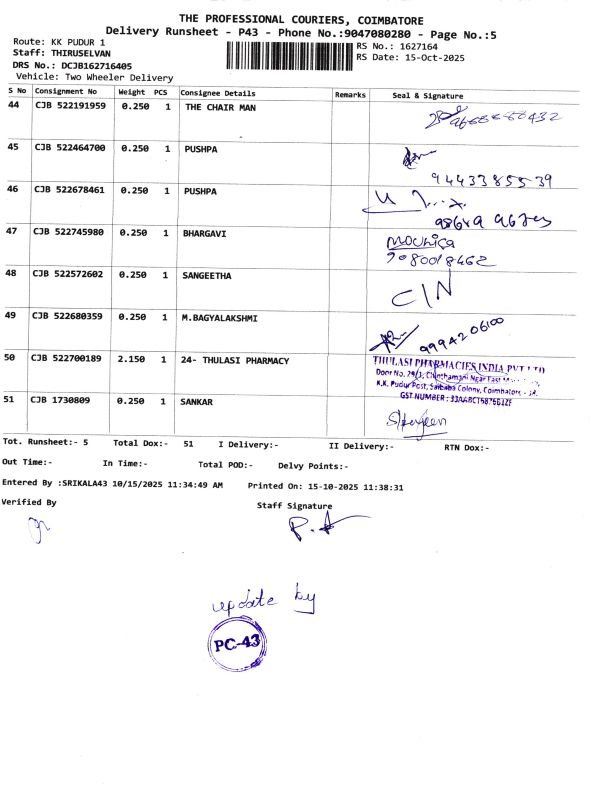 THE PROFESSIONAL COURIERS, COIMBATORE
Delivery Runsheet - P43 - Phone No.:9047080280 - Page No.:5
Route: KK PUDUR 1
RS No.: 1627164
Staff: THIRUSELVAN
RS Date: 15-Oct-2025
DRS No.: DCJB162716405
Vehicle: Two Wheeler Delivery
S No Consignment No Weight PCS Consignee Details Remarks Seal & Signature
44 CJB 522191959 0.250 1 THE CHAIR MAN
45 CJB 522464700 0.250 1 PUSHPA
9443385539
46 CJB 522678461 0.250 1 PUSHPA
47 CJB 522745980 0.250 1 BHARGAVI
Mounica
9080018462
48 CJB 522572602 0.250 1 SANGEETHA
CIN
49 CJB 522680359 0.250 1 M.BAGYALAKSHMI
9994206100
50 CJB 522700189 2.150 1 24- THULASI PHARMACY
THULASI PHARMACIES INDIA PVT LTD
Door No. 29/3, Chinthamani Ngar East
K.K. Pudur Post, Saibaba Colony, Coimbatore -
GST NUMBER :
51 CJB 1730809 0.250 1 SANKAR
Tot. Runsheet:- 5 Total Dox:- 51 I Delivery:- II Delivery:- RTN Dox:-
Out Time:- In Time:- Total POD:- Delvy Points:-
Entered By :SRIKALA43 10/15/2025 11:34:49 AM Printed On: 15-10-2025 11:38:31
Verified By Staff Signature
update by
PC-43